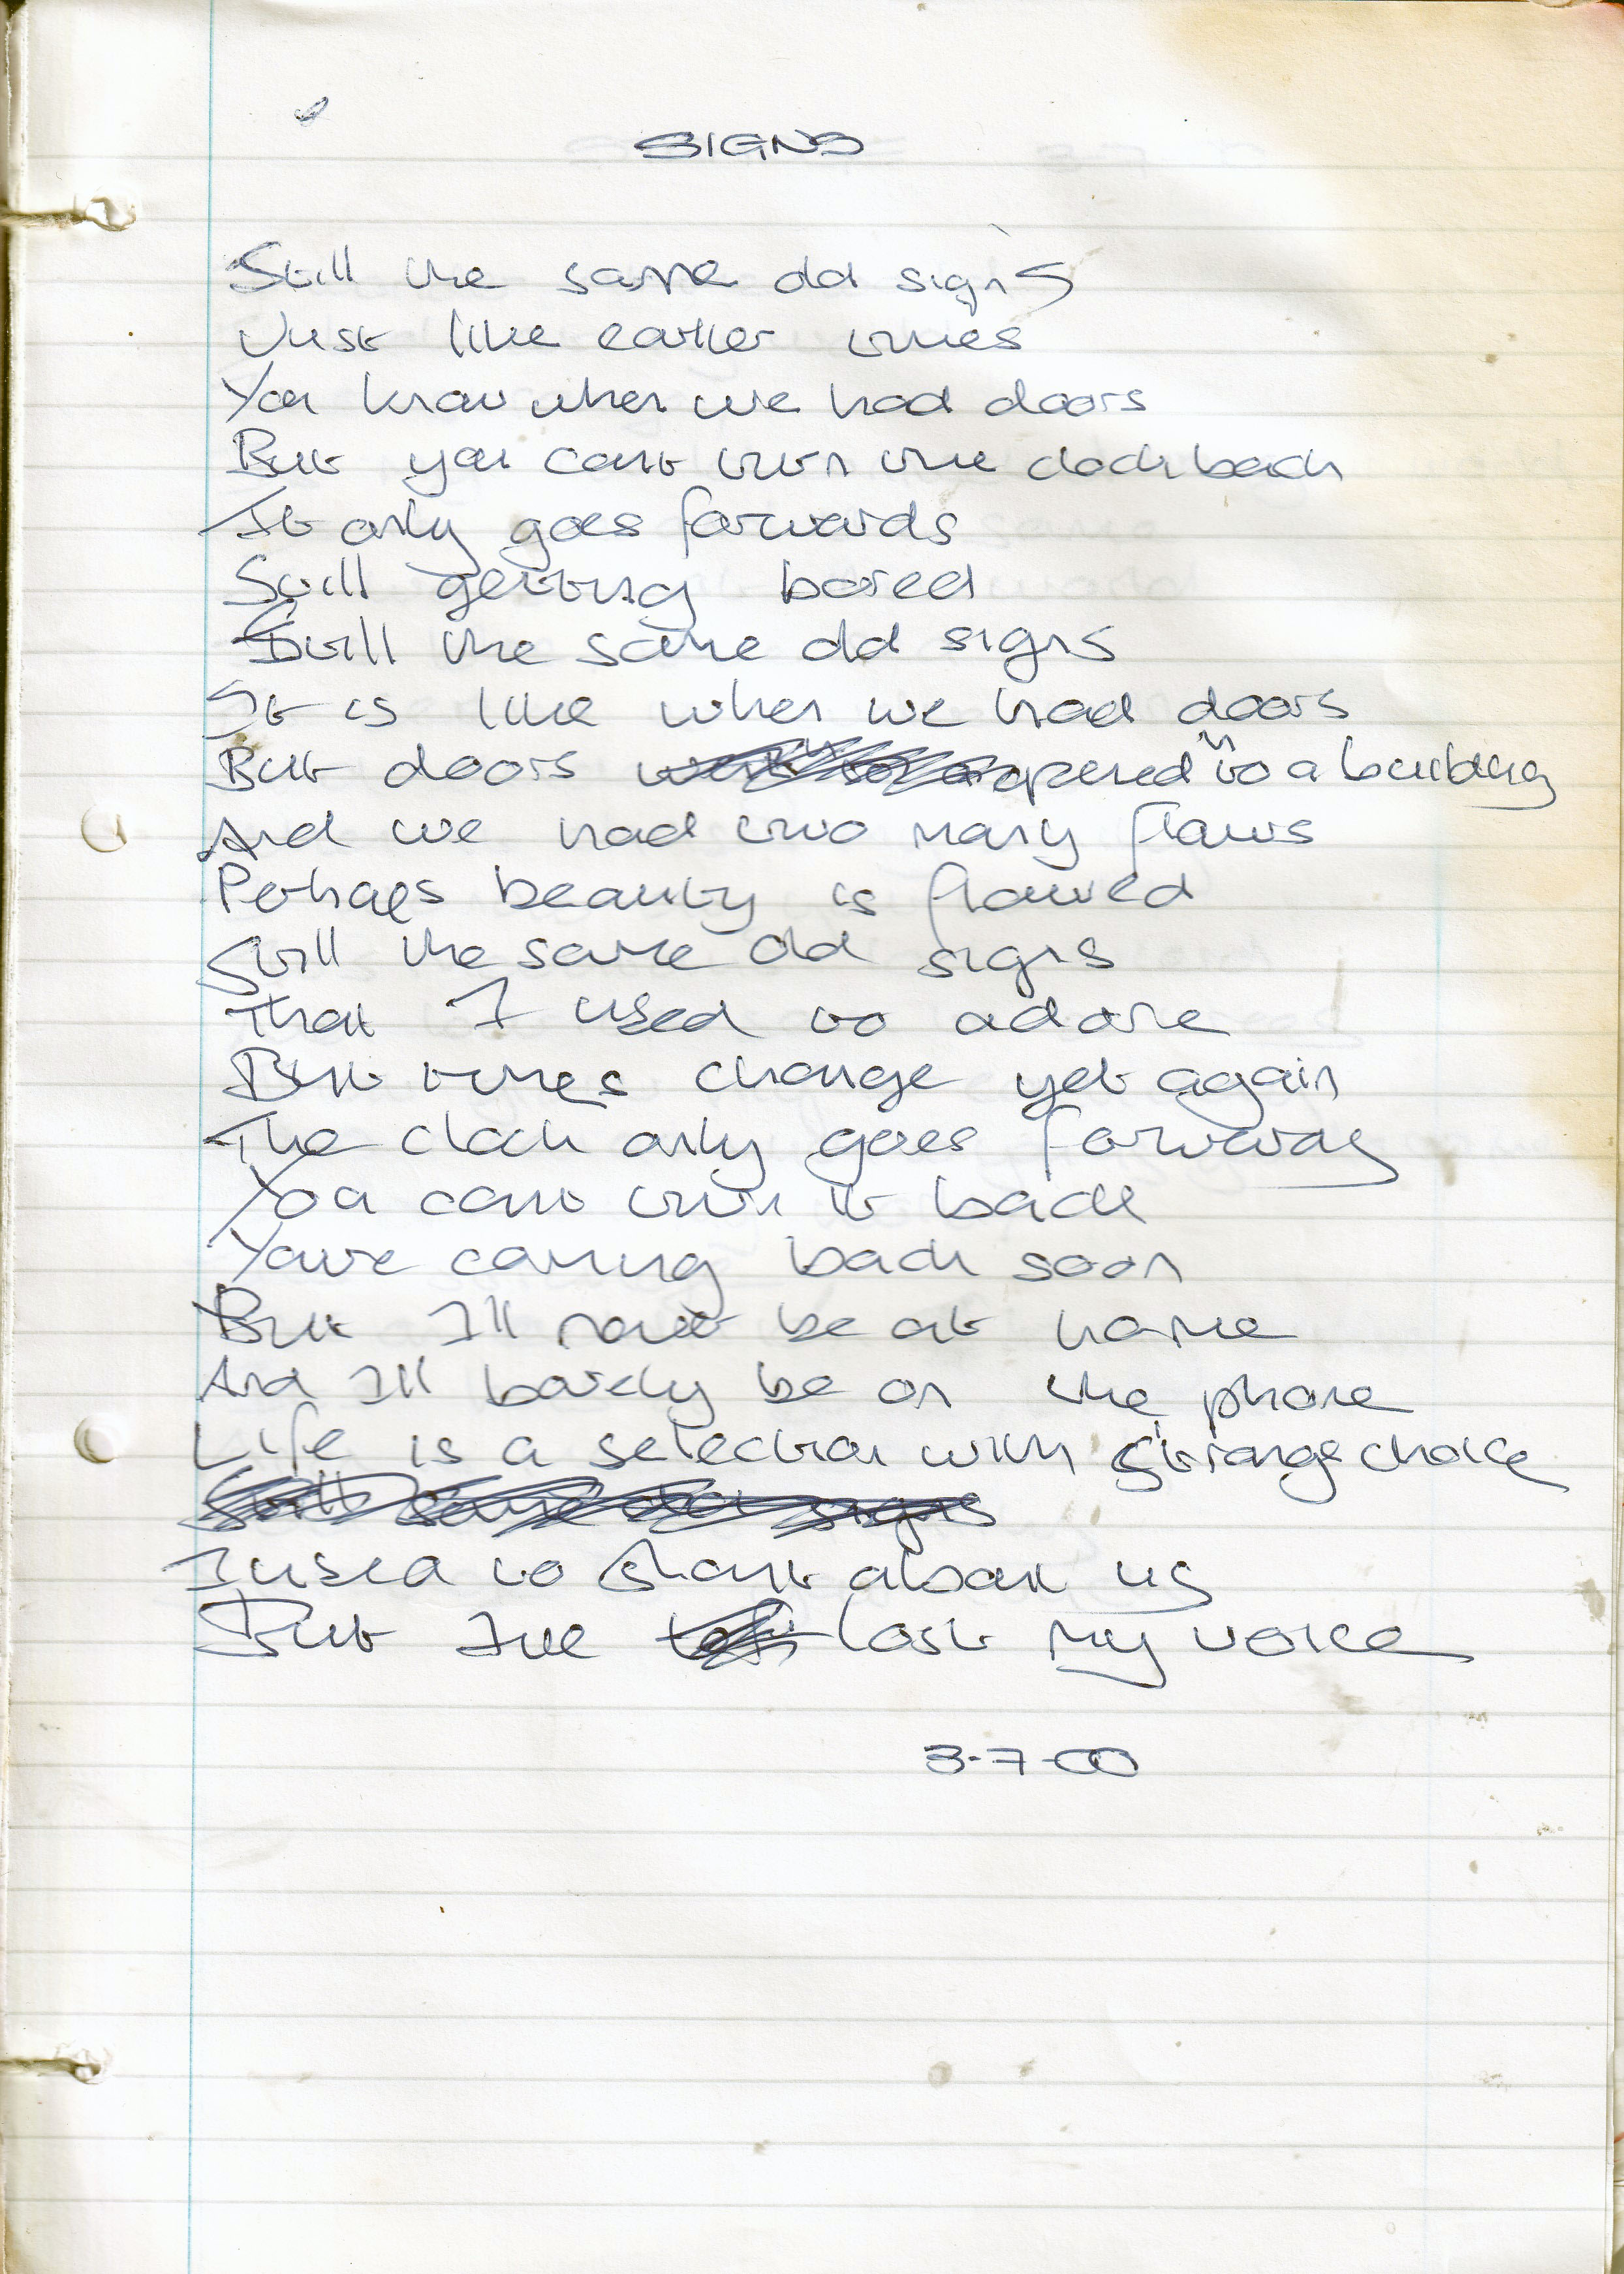 SIGNS
Still the same old signs
Just like earlier times
You know when we had doors
But you cant turn the clock back
It only goes forwards
Still getting bored
Still the same old signs
It is like when we had doors
But doors opened to a building
And we had two many flaws
Perhaps beauty is flawed
Still the same old signs
That I used to adore
But times change yet again
The clock only goes forward
You cant turn it back
Youre coming back soon
But I'll not be at home
And I'll barely be on the phone
Life is a selection with strange choice
Still same old signs
I used to shout about us
But Ive lost my voice
3-7-00